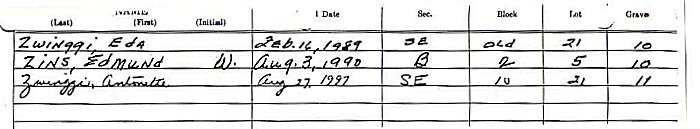 NAME
(Last) (First) (Initial) Date Sec. Block Lot Grave
Zwinggi, Eda Feb. 16, 1989 SE OLD 21 10
ZINS, EDMUND W. Aug. 3, 1990 B 2 5 10
Zwinggi, Antonette Aug 27, 1997 SE 10 21 11